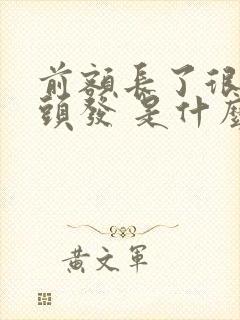 前額長了很
頭發 是什麼
黃文軍